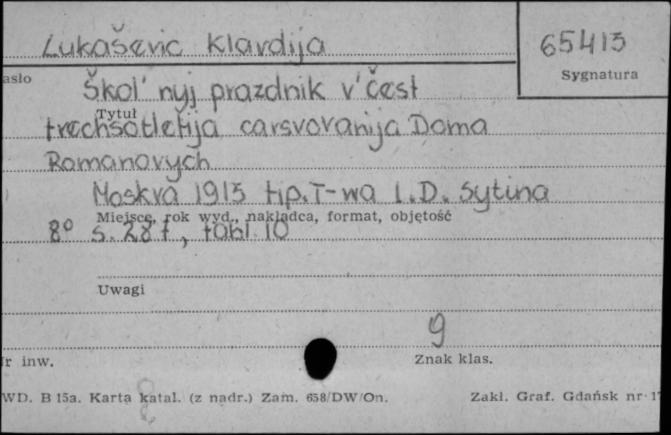 Lukašević Klavdija
65413
asło
Sygnatura
Škol'nyj prazdnik v čest
Tytuł
trechsotletija carsvovanija Doma
Romanovych
Moskva 1913 tip. T-wa I.D. Sytina
Miejsce, rok wyd., nakładca, format, objętość
8° s. 287, tabl 10
Uwagi
9
r inw.
Znak klas.
WD. B 15a. Karta katal. (z nadr.) Zam. 658/DW/On.
Zakł. Graf. Gdańsk nr 17